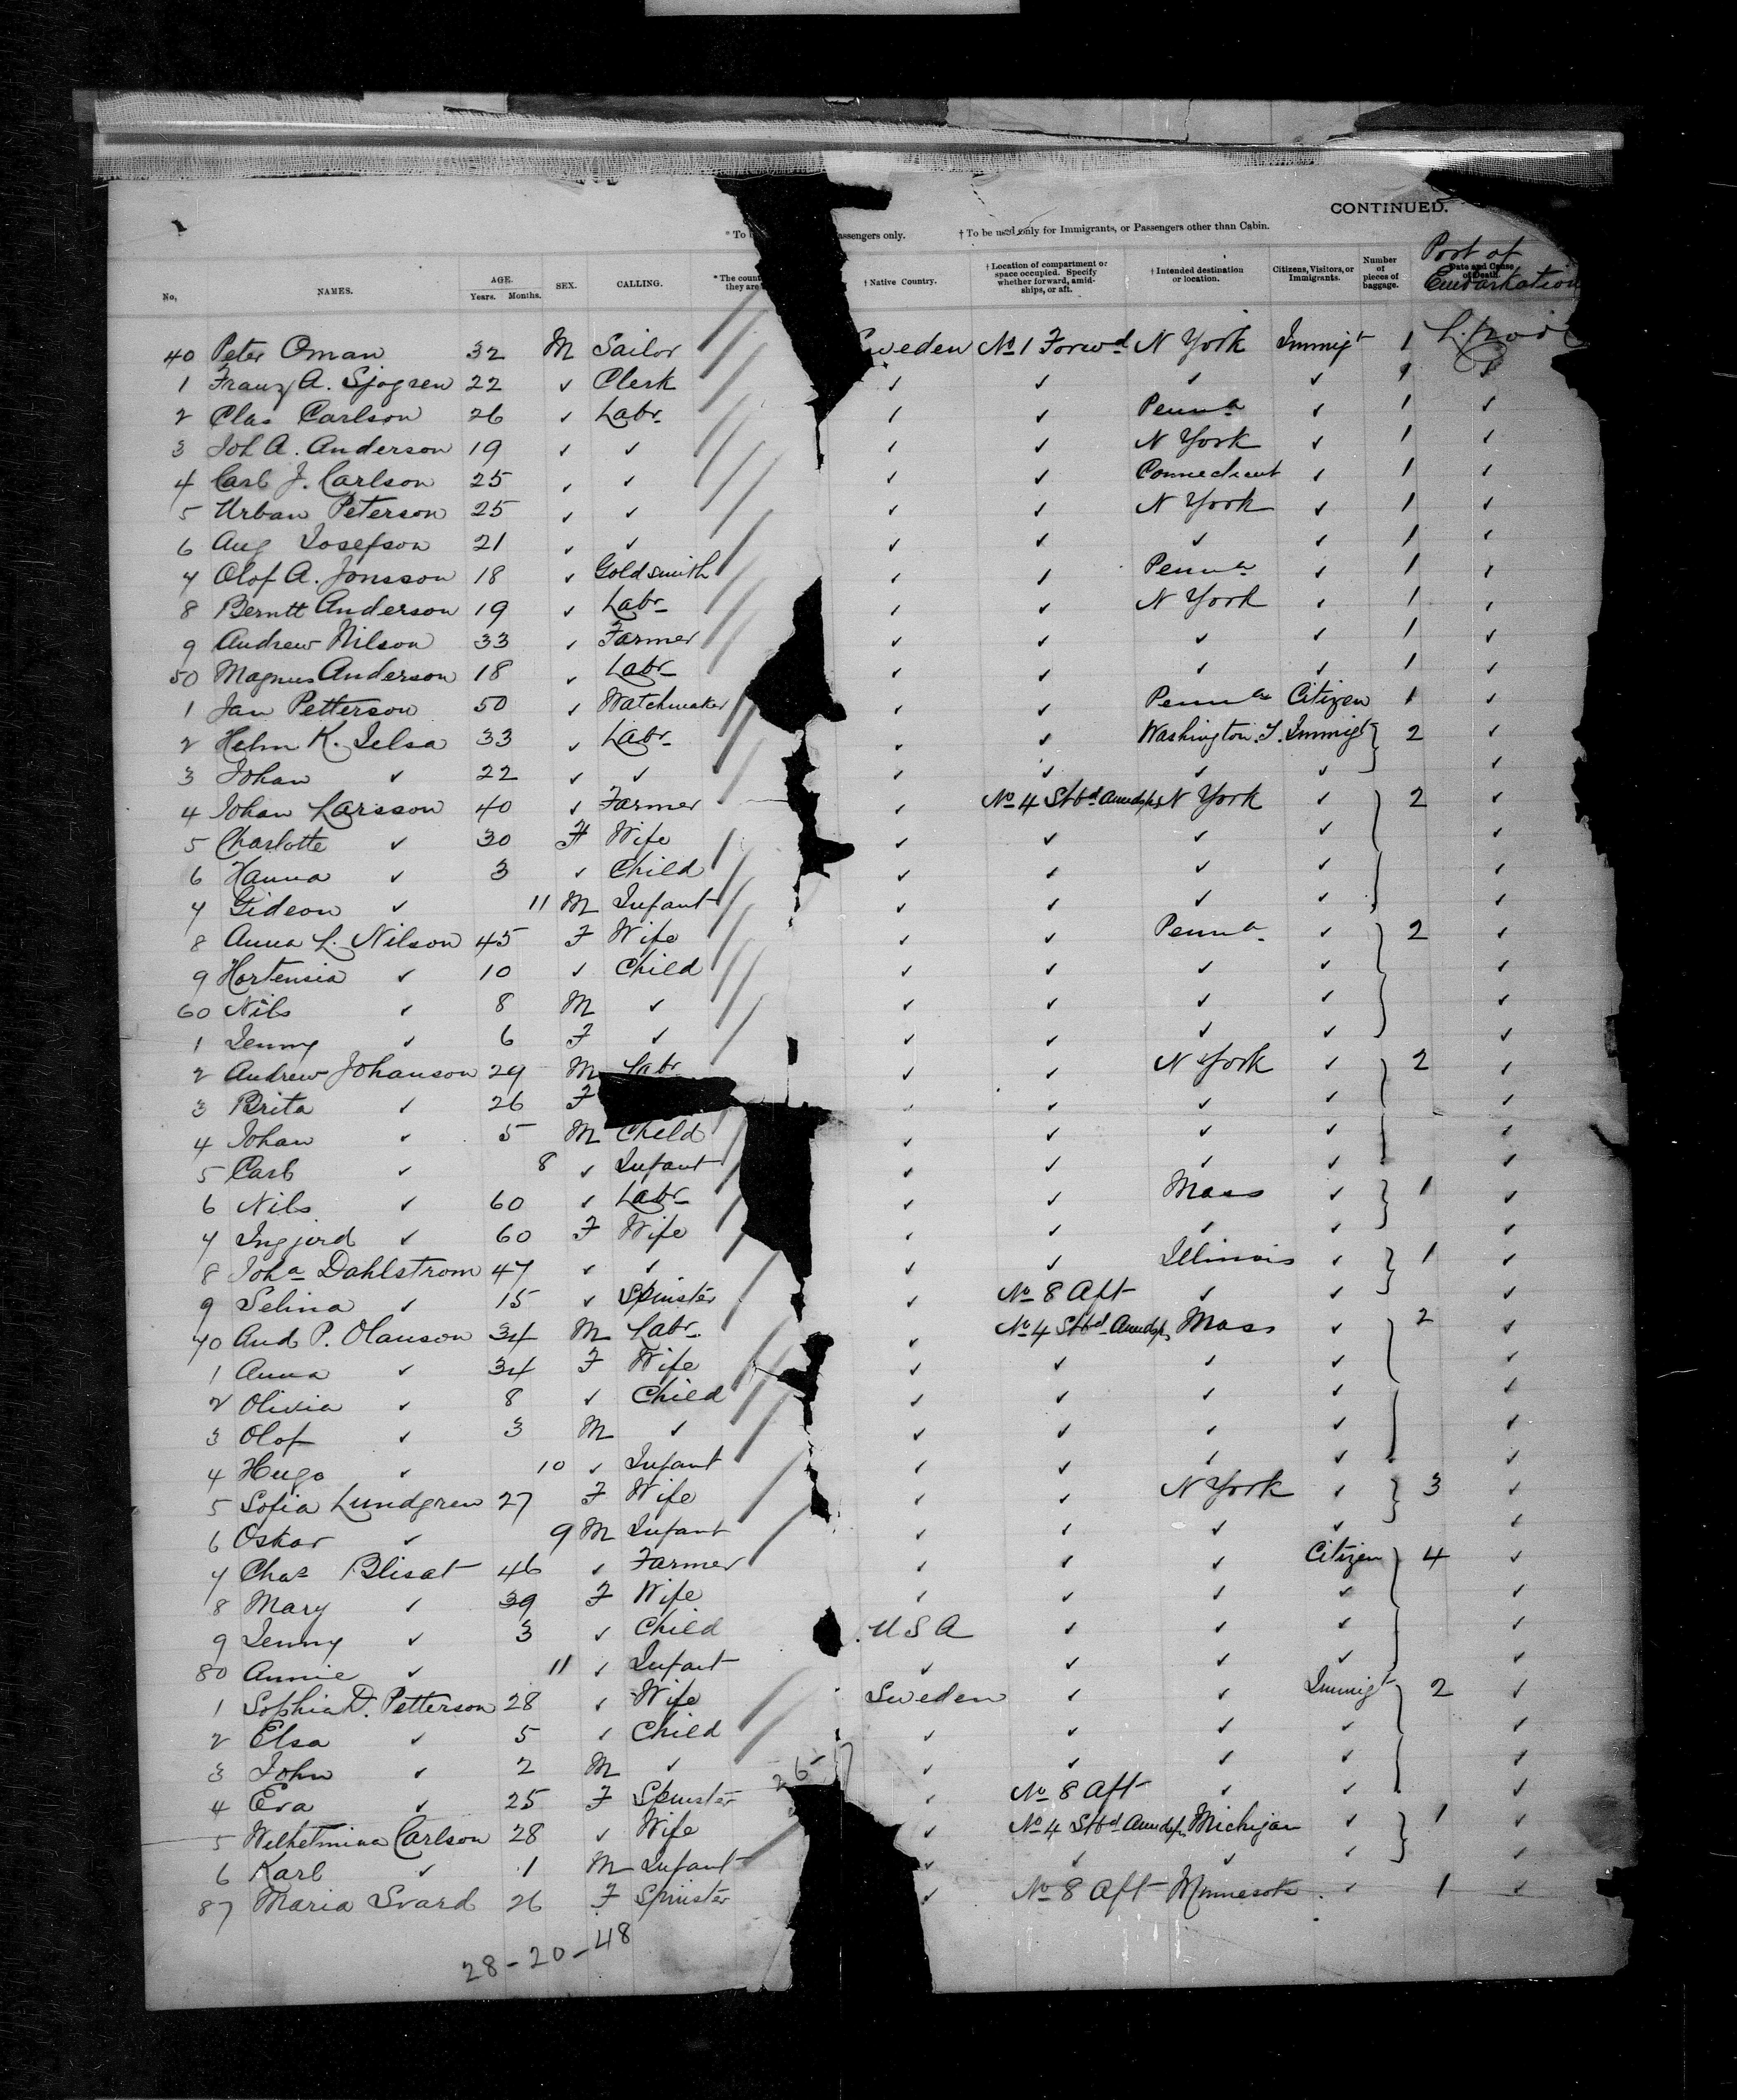 CONTINUED.
* To b assengers only. † To be used only for Immigrants, or Passengers other than Cabin.
No. NAMES. AGE. Years. Months. SEX. CALLING. * The count they are † Native Country. † Location of compartment or space occupied. Specify whether forward, amid-ships, or aft. † Intended destination or location. Citizens, Visitors, or Immigrants. Number of pieces of baggage. Date and Cause of Death. Port of Embarkation
40 Peter Oman 32 M Sailor Sweden No 1 Forwd N York Immigt 1
1 Franz A. Sjogren 22 ✓ Clerk ✓ ✓ ✓ ✓ 1 ✓
2 Clas Carlson 26 ✓ Labr ✓ ✓ Penna ✓ 1 ✓
3 Joh A. Anderson 19 ✓ ✓ ✓ ✓ N York ✓ 1 ✓
4 Carl J. Carlson 25 ✓ ✓ ✓ ✓ Connecticut ✓ 1 ✓
5 Urban Peterson 25 ✓ ✓ ✓ ✓ N York ✓ 1 ✓
6 Aug Josefson 21 ✓ ✓ ✓ ✓ ✓ ✓ 1 ✓
7 Olof A. Jonsson 18 ✓ Goldsmith ✓ ✓ Penna ✓ 1 ✓
8 Berntt Anderson 19 ✓ Labr ✓ ✓ N York ✓ 1 ✓
9 Andrew Nilson 33 ✓ Farmer ✓ ✓ ✓ ✓ 1 ✓
50 Magnus Anderson 18 ✓ Labr ✓ ✓ ✓ ✓ 1 ✓
1 Jan Petterson 50 ✓ Watchmaker ✓ ✓ Penna Citizen 1 ✓
2 Helm K. Jelsa 33 ✓ Labr ✓ ✓ Washington T. Immigt 2 ✓
3 Johan ✓ 22 ✓ ✓ ✓ ✓ ✓ ✓ ✓
4 Johan Larsson 40 ✓ Farmer ✓ No 4 Stbd Amdsps N York ✓ 2 ✓
5 Charlotte ✓ 30 F Wife ✓ ✓ ✓ ✓ ✓
6 Hanna ✓ 3 ✓ Child ✓ ✓ ✓ ✓ ✓
7 Gideon ✓ 11 M Infant ✓ ✓ ✓ ✓ ✓
8 Anna L. Nilson 45 F Wife ✓ ✓ Penna ✓ 2 ✓
9 Hortensia ✓ 10 ✓ Child ✓ ✓ ✓ ✓ ✓
60 Nils ✓ 8 M ✓ ✓ ✓ ✓ ✓ ✓
1 Jenny ✓ 6 F ✓ ✓ ✓ ✓ ✓ ✓
2 Andrew Johanson 29 M Labr ✓ ✓ N York ✓ 2 ✓
3 Brita ✓ 26 F ✓ ✓ ✓ ✓ ✓
4 Johan ✓ 5 M Child ✓ ✓ ✓ ✓ ✓
5 Carl ✓ 8 ✓ Infant ✓ ✓ ✓ ✓ ✓
6 Nils ✓ 60 ✓ Labr ✓ ✓ Mass ✓ 1 ✓
7 Ingjerd ✓ 60 F Wife ✓ ✓ ✓ ✓ ✓
8 Joha Dahlstrom 47 ✓ ✓ ✓ ✓ Illinois ✓ 1 ✓
9 Selina ✓ 15 ✓ Spinster ✓ No 8 Aft ✓ ✓ ✓
70 And P. Olanson 34 M Labr. ✓ No 4 Stbd Amdsps Mass ✓ 2 ✓
1 Anna ✓ 34 F Wife ✓ ✓ ✓ ✓ ✓
2 Olivia ✓ 8 ✓ Child ✓ ✓ ✓ ✓ ✓
3 Olof ✓ 3 M ✓ ✓ ✓ ✓ ✓ ✓
4 Hugo ✓ 10 ✓ Infant ✓ ✓ ✓ ✓ ✓
5 Sofia Lundgren 27 F Wife ✓ ✓ N York ✓ 3 ✓
6 Oskar ✓ 9 M Infant ✓ ✓ ✓ ✓ ✓
7 Chas Blisat 46 ✓ Farmer ✓ ✓ ✓ Citizen 4 ✓
8 Mary ✓ 39 F Wife ✓ ✓ ✓ ✓ ✓
9 Jenny ✓ 3 ✓ Child USA ✓ ✓ ✓ ✓
80 Annie ✓ 11 ✓ Infant ✓ ✓ ✓ ✓ ✓
1 Sophia D. Petterson 28 ✓ Wife Sweden ✓ ✓ Immigt 2 ✓
2 Elsa ✓ 5 ✓ Child ✓ ✓ ✓ ✓ ✓
3 John ✓ 2 M ✓ ✓ ✓ ✓ ✓ ✓
4 Eva ✓ 25 F Spinster ✓ No 8 Aft ✓ ✓ ✓
5 Wilhelmina Carlson 28 ✓ Wife ✓ No 4 Stbd Amdsps Michigan ✓ 1 ✓
6 Karl ✓ 1 M Infant ✓ ✓ ✓ ✓ ✓
87 Maria Svard 26 F Spinster ✓ No 8 Aft Minnesota ✓ 1 ✓
28-20-48